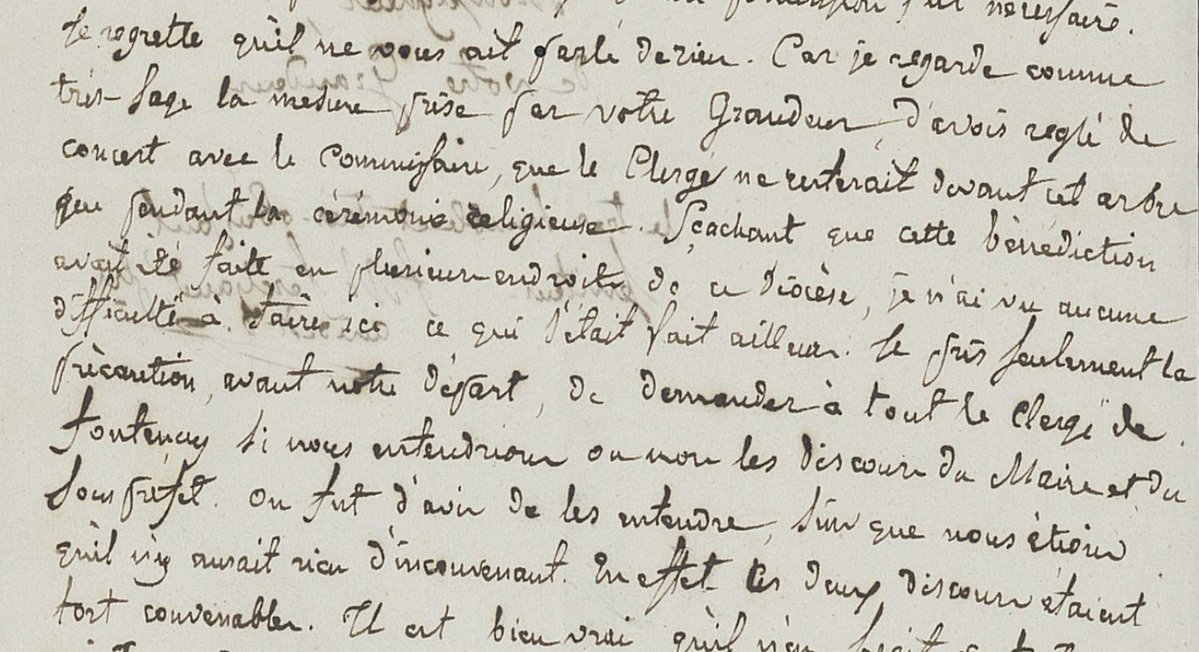 nécessaire.
Je regrette qu'il ne vous ait parlé de rien. Car je regarde comme
très-sage la mesure prise par votre Grandeur, d'avoir reglé de
concert avec le Commissaire, que le Clergé ne resterait devant cet arbre
que pendant la cérémonie religieuse. Sçachant que cette bénédiction
avait été faite en plusieurs endroits de ce Diocèse, je n'ai vu aucune
difficulté à faire ici ce qui s'était fait ailleurs. Je pris seulement la
précaution, avant notre départ, de demander à tout le Clergé de
Fontenay si nous entendrions ou non les discours du Maire et du
Sous préfet. On fut d'avis de les entendre, sûrs que nous étions
qu'il n'y aurait rien d'inconvenant. En effet les deux discours étaient
fort convenables. Il est bien vrai qu'il n'en